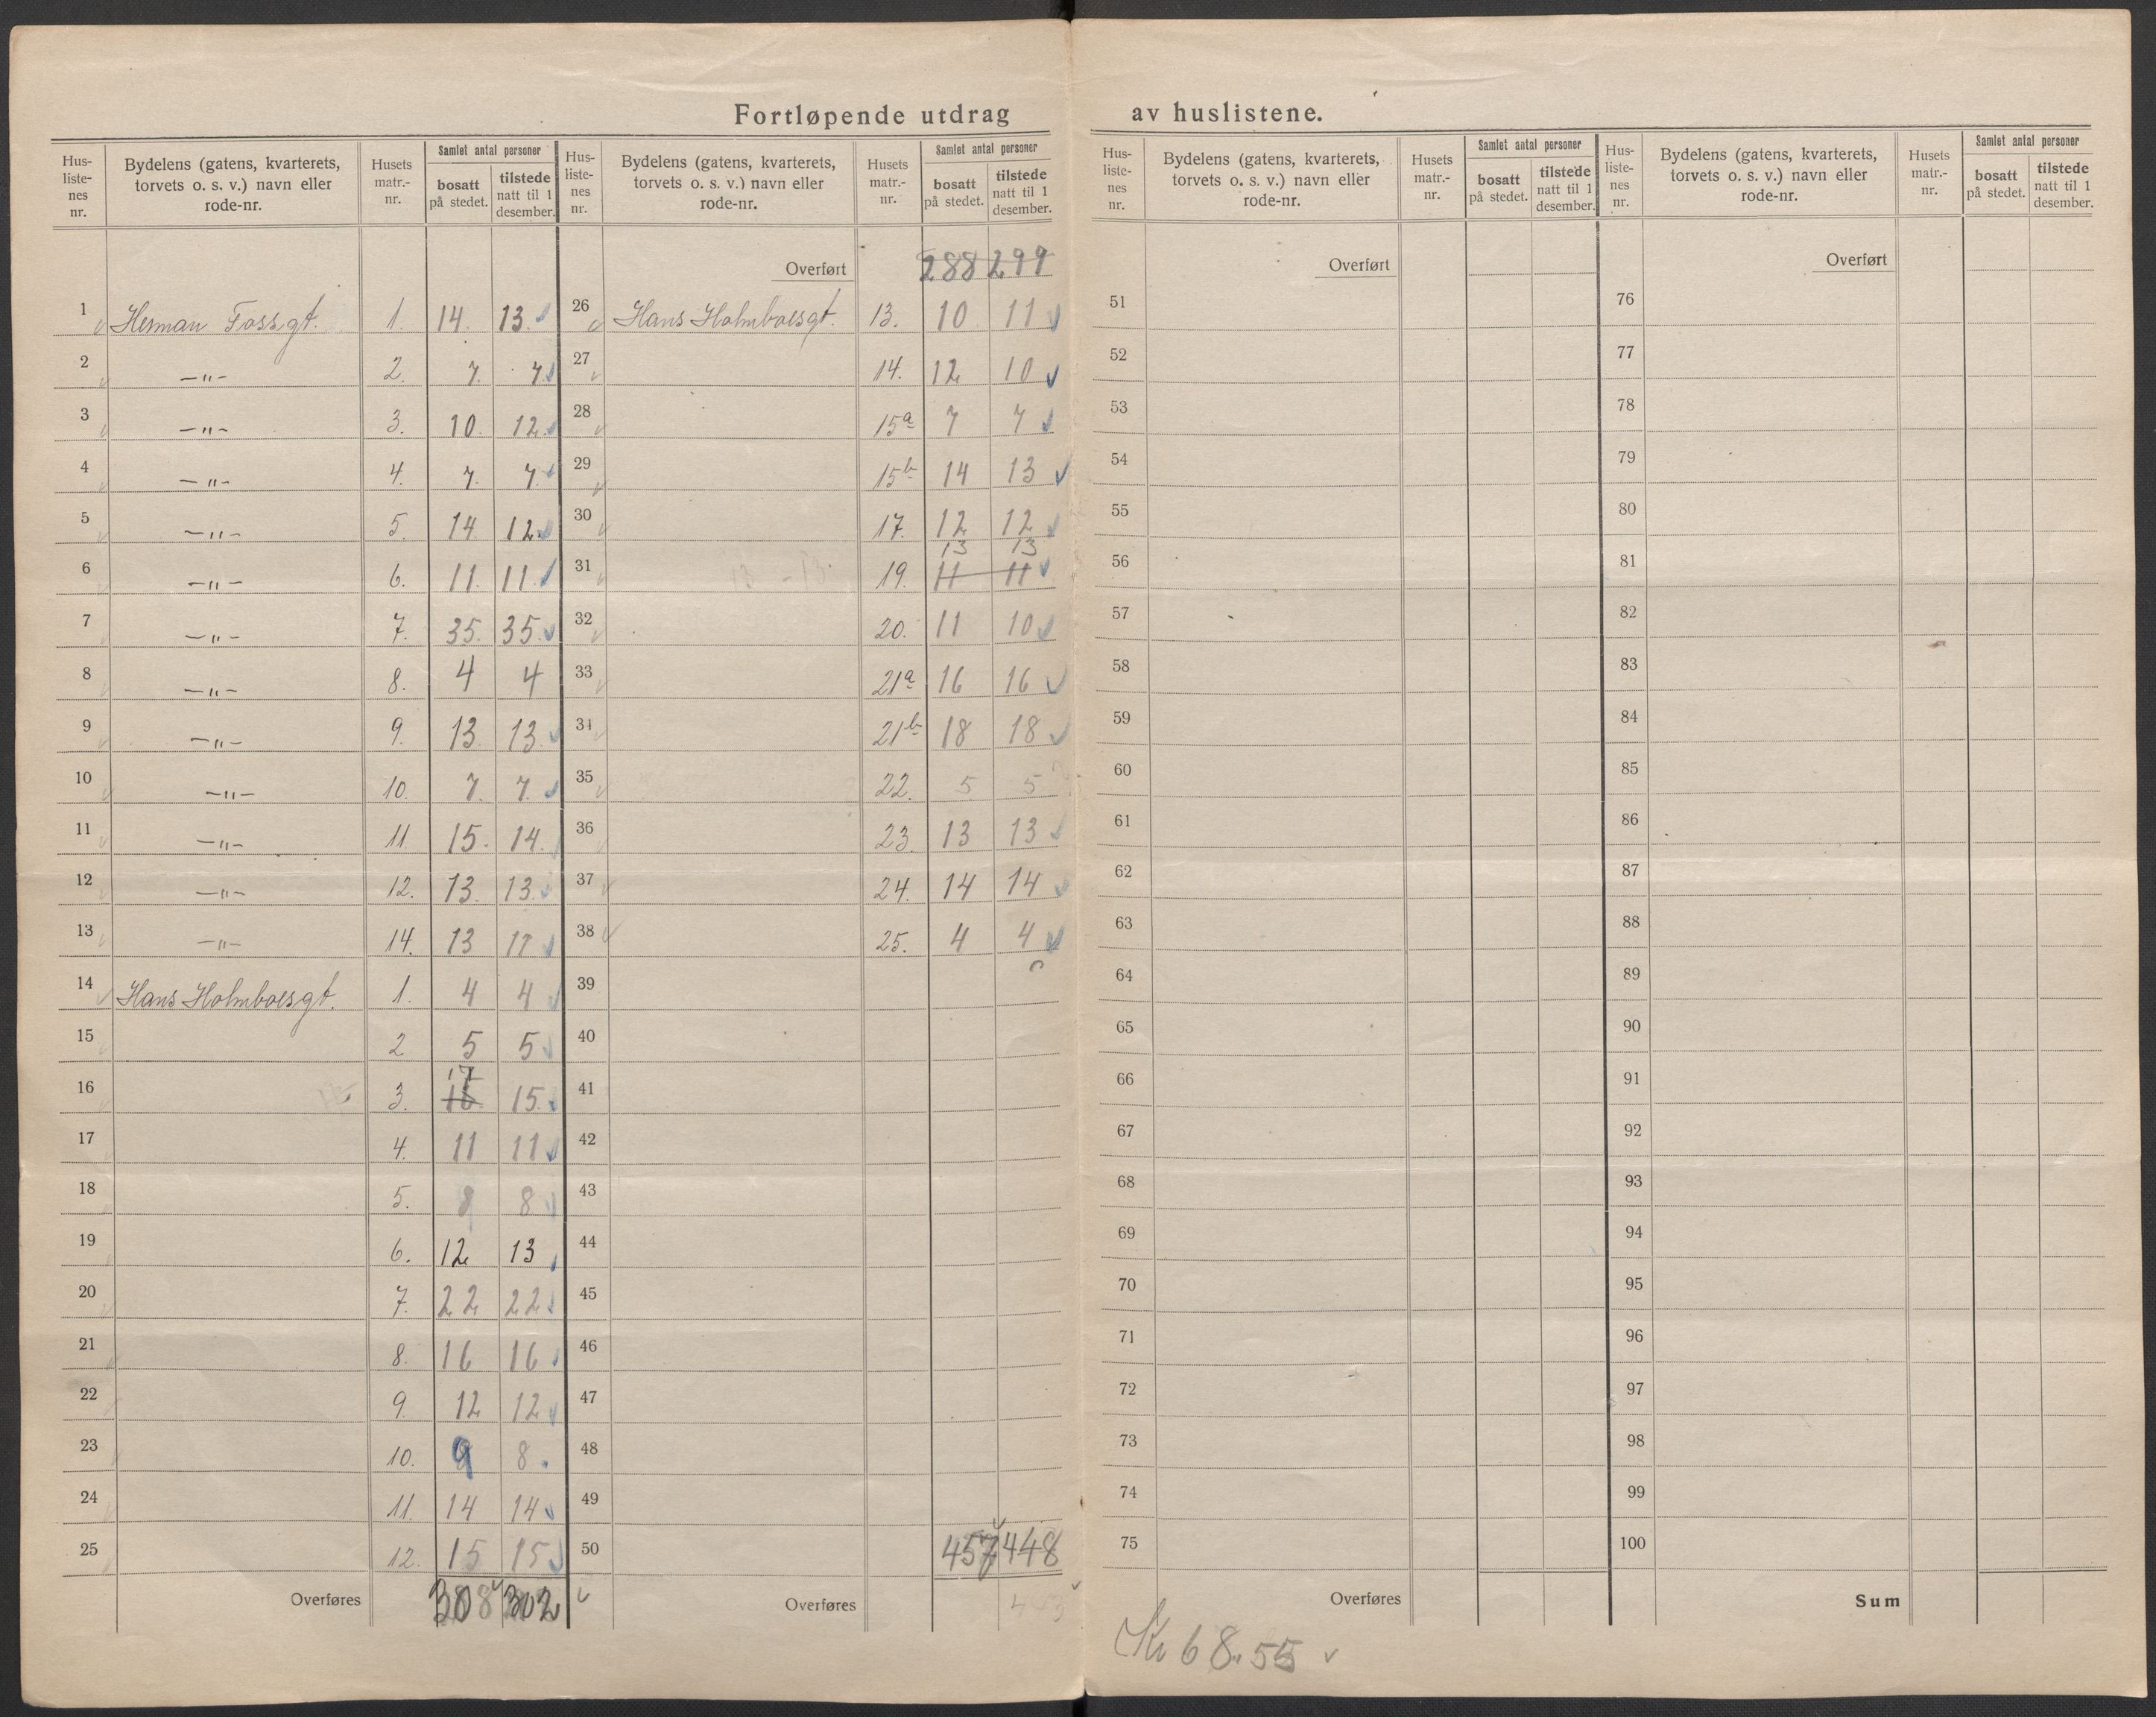 Fortløpende utdrag av huslistene.
Hus-liste-nes nr. | Bydelens (gatens, kvarterets, torvets o. s. v.) navn eller rode-nr. | Husets matr.-nr. | Samlet antal personer | bosatt på stedet. | tilstede natt til 1 desember.
1 Herman Fossgt. 1. 14. 13.
2 —"— 2. 7. 7.
3 —"— 3. 10. 12.
4 —"— 4. 7. 7.
5 —"— 5. 14 12.
6 —"— 6. 11. 11.
7 —"— 7. 35. 35.
8 —"— 8. 4 4
9 —"— 9. 13. 13.
10 —"— 10. 7. 7.
11 —"— 11 15. 14.
12 —"— 12. 13. 13.
13 —"— 14. 13
14 Hans Holmboesgt. 1. 4 4
15 2 5 5
16 3. 17 15.
17 4. 11 11
18 5. 8 8
19 6. 12 13
20 7. 22 22
21 8. 16 16
22 9. 12 12
23 10. 9 8
24 11. 14 14
25 12. 15 15
Overføres 308 302
Hus-liste-nes nr. | Bydelens (gatens, kvarterets, torvets o. s. v.) navn eller rode-nr. | Husets matr.-nr. | Samlet antal personer | bosatt på stedet. | tilstede natt til 1 desember.
Overført 288 299
26 Hans Holmboesgt. 13. 10 11
27 14. 12 10
28 15a 7 7
29 15b 14 13
30 17. 12 12
13 13
31 19. 11 11
32 20. 11 10
33 21a 16 16
34 21b 18 18
35 22. 5 5
36 23. 13 13
37 24. 14 14
38 25. 4 4
39
40
41
42
43
44
45
46
47
48
49
50 457 448
Overføres
Hus-liste-nes nr. | Bydelens (gatens, kvarterets, torvets o. s. v.) navn eller rode-nr. | Husets matr.-nr. | Samlet antal personer | bosatt på stedet. | tilstede natt til 1 desember.
Overført
51
52
53
54
55
56
57
58
59
60
61
62
63
64
65
66
67
68
69
70
71
72
73
74
75
Overføres
Kr 68.55
Hus-liste-nes nr. | Bydelens (gatens, kvarterets, torvets o. s. v.) navn eller rode-nr. | Husets matr.-nr. | Samlet antal personer | bosatt på stedet. | tilstede natt til 1 desember.
Overført
76
77
78
79
80
81
82
83
84
85
86
87
88
89
90
91
92
93
94
95
96
97
98
99
100
Sum